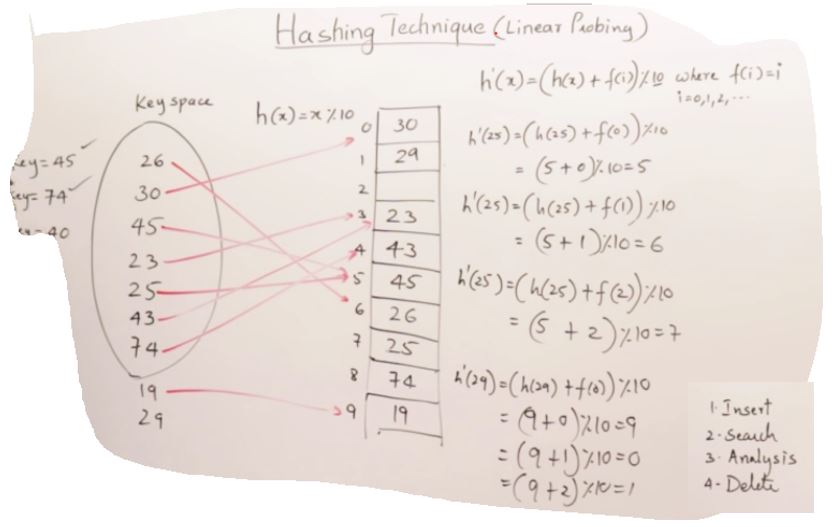 Hashing Technique (Linear Probing)
h'(x)=(h(x) + f(i))%10 where f(i)=i
i=0,1,2,...
Key space
h(x)=x%10
key=45 ✓
key=74 ✓
=40
26
30
45
23
25
43
74
19
29
0 30
1 29
2
3 23
4 43
5 45
6 26
7 25
8 74
9 19
h'(25)=(h(25) + f(0))%10
= (5+0)%10=5
h'(25)=(h(25) + f(1))%10
= (5+1)%10=6
h'(25)=(h(25) + f(2))%10
= (5 + 2)%10=7
h'(29)=(h(29) + f(0))%10
= (9+0)%10=9
= (9+1)%10=0
= (9+2)%10=1
1. Insert
2. Search
3. Analysis
4. Delete